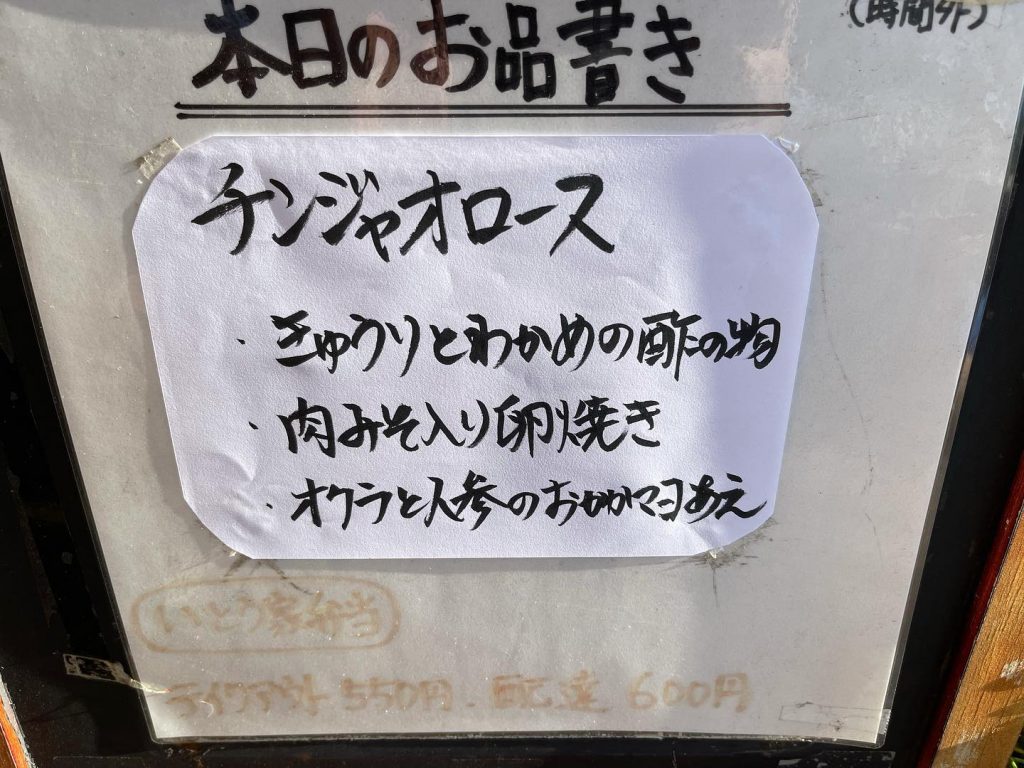 (時間外)
本日のお品書き
チンジャオロース
・きゅうりとわかめの酢の物
・肉みそ入り卵焼き
・オクラと人参のおかかマヨあえ
いとう家弁当
テイクアウト 550円. 配達 600円